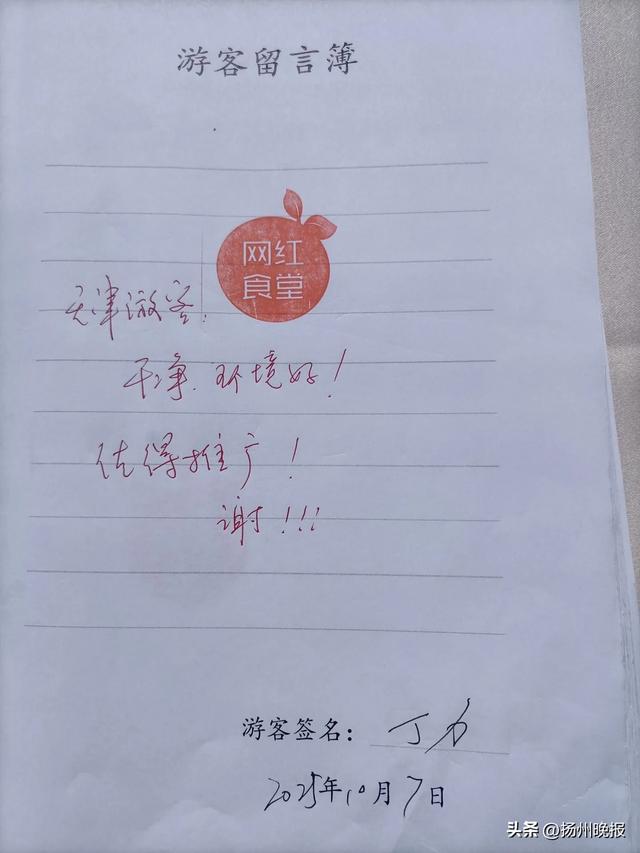 游客留言簿
网红
食堂
天津游客:
干净.环境好!
值得推广!
谢!!!
游客签名：丁力
2025年10月7日
头条 @扬州晚报